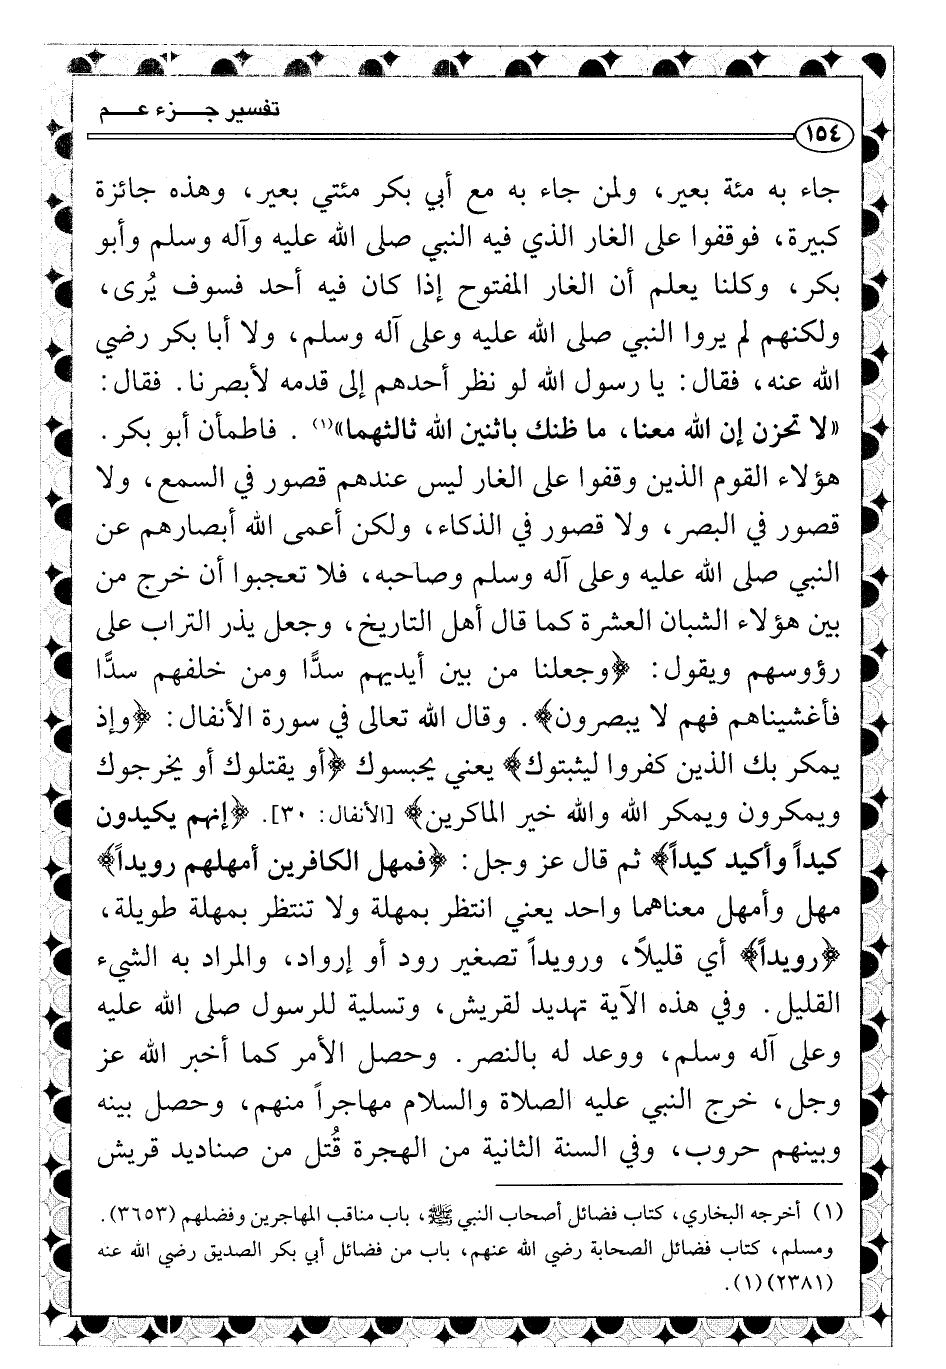 تفسير جـــزء عـــم
١٥٤
جاء به مئة بعير، ولمن جاء به مع أبي بكر مئتي بعير، وهذه جائزة
كبيرة، فوقفوا على الغار الذي فيه النبي صلى الله عليه وآله وسلم وأبو
بكر، وكلنا يعلم أن الغار المفتوح إذا كان فيه أحد فسوف يُرى،
ولكنهم لم يروا النبي صلى الله عليه وعلى آله وسلم، ولا أبا بكر رضي
الله عنه، فقال: يا رسول الله لو نظر أحدهم إلى قدمه لأبصرنا. فقال:
«لا تحزن إن الله معنا، ما ظنك باثنين الله ثالثهما»(١) . فاطمأن أبو بكر.
هؤلاء القوم الذين وقفوا على الغار ليس عندهم قصور في السمع، ولا
قصور في البصر، ولا قصور في الذكاء، ولكن أعمى الله أبصارهم عن
النبي صلى الله عليه وعلى آله وسلم وصاحبه، فلا تعجبوا أن خرج من
بين هؤلاء الشبان العشرة كما قال أهل التاريخ، وجعل يذر التراب على
رؤوسهم ويقول: ﴿وجعلنا من بين أيديهم سدًّا ومن خلفهم سدًّا
فأغشيناهم فهم لا يبصرون﴾. وقال الله تعالى في سورة الأنفال: ﴿وإذ
يمكر بك الذين كفروا ليثبتوك﴾ يعني يحبسوك ﴿أو يقتلوك أو يخرجوك
ويمكرون ويمكر الله والله خير الماكرين﴾ [الأنفال: ٣٠]. ﴿إنهم يكيدون
كيداً وأكيد كيداً﴾ ثم قال عز وجل: ﴿فمهل الكافرين أمهلهم رويداً﴾
مهل وأمهل معناهما واحد يعني انتظر بمهلة ولا تنتظر بمهلة طويلة،
﴿رويداً﴾ أي قليلاً، ورويداً تصغير رود أو إرواد، والمراد به الشيء
القليل. وفي هذه الآية تهديد لقريش، وتسلية للرسول صلى الله عليه
وعلى آله وسلم، ووعد له بالنصر. وحصل الأمر كما أخبر الله عز
وجل، خرج النبي عليه الصلاة والسلام مهاجراً منهم، وحصل بينه
وبينهم حروب، وفي السنة الثانية من الهجرة قُتل من صناديد قريش
(١) أخرجه البخاري، كتاب فضائل أصحاب النبي ﷺ، باب مناقب المهاجرين وفضلهم (٣٦٥٣).
ومسلم، كتاب فضائل الصحابة رضي الله عنهم، باب من فضائل أبي بكر الصديق رضي الله عنه
(٢٣٨١)(١).